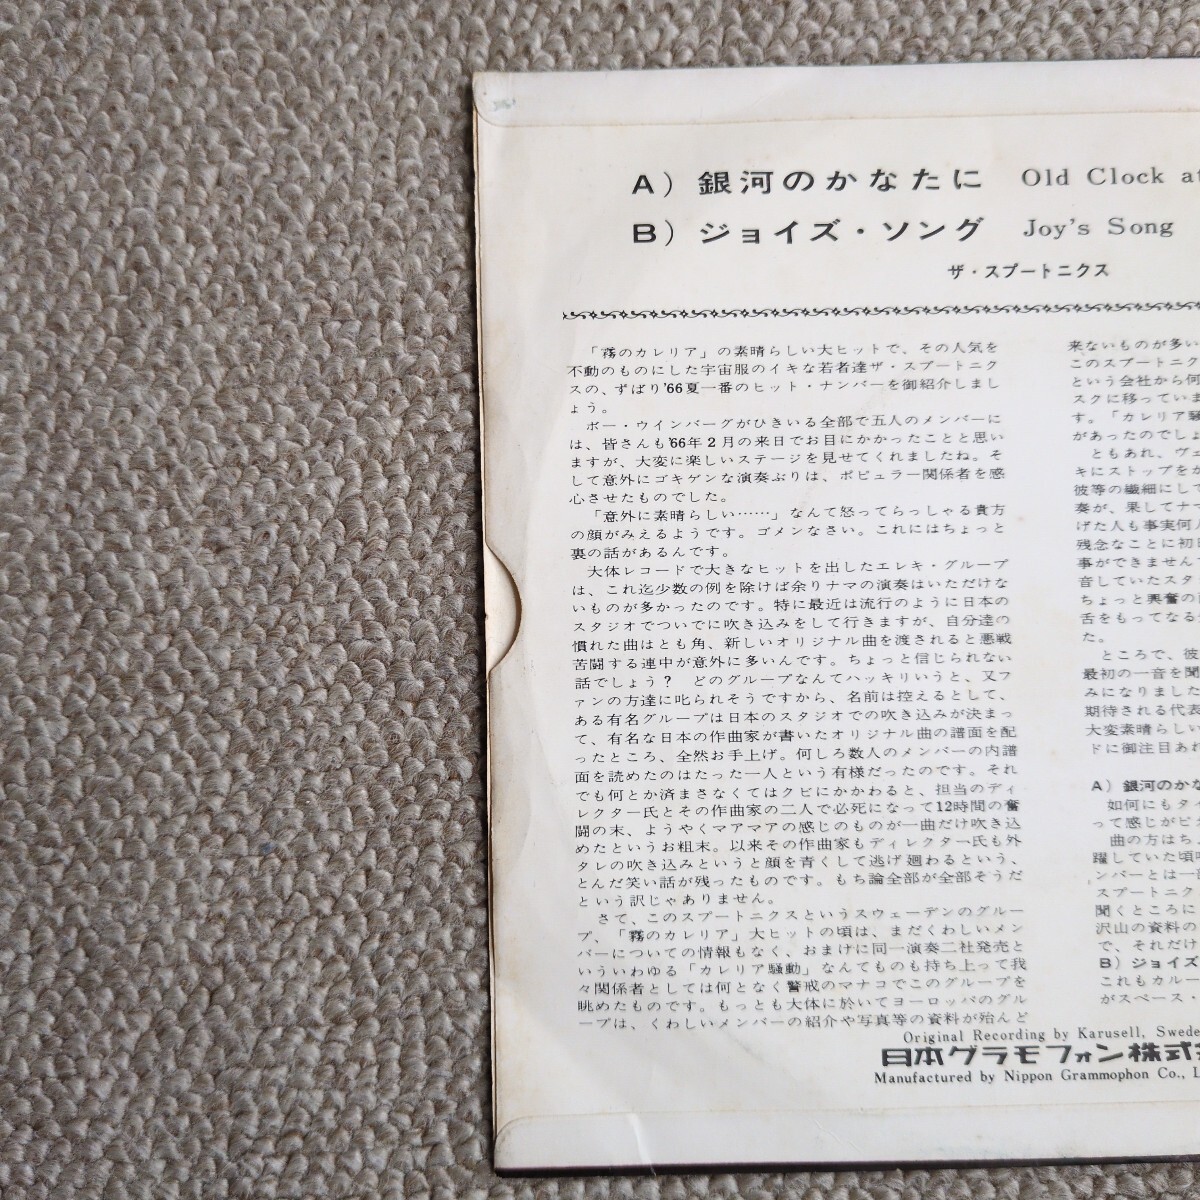 A) 銀河のかなたに Old Clock at
B) ジョイズ・ソング Joy's Song
ザ・スプートニクス
「霧のカレリア」の素晴らしい大ヒットで、その人気を
不動のものにした宇宙服のイキな若者達ザ・スプートニク
スの、ずばり'66夏一番のヒット・ナンバーを御紹介しまし
ょう。
ボー・ウインバーグがひきいる全部で五人のメンバーに
は、皆さんも'66年2月の来日でお目にかかったことと思い
ますが、大変に楽しいステージを見せてくれましたね。そ
して意外にゴキゲンな演奏ぶりは、ポピュラー関係者を感
心させたものでした。
「意外に素晴らしい……」なんて怒ってらっしゃる貴方
の顔がみえるようです。ゴメンなさい。これにはちょっと
裏の話があるんです。
大体レコードで大きなヒットを出したエレキ・グループ
は、これ迄少数の例を除けば余りナマの演奏はいただけな
いものが多かったのです。特に最近は流行のように日本の
スタジオでついでに吹き込みをして行きますが、自分達の
慣れた曲はとも角、新しいオリジナル曲を渡されると悪戦
苦闘する連中が意外に多いんです。ちょっと信じられない
話でしょう? どのグループなんてハッキリいうと、又フ
ァンの方達に叱られそうですから、名前は控えるとして、
ある有名グループは日本のスタジオでの吹き込みが決まっ
て、有名な日本の作曲家が書いたオリジナル曲の譜面を配
ったところ、全然お手上げ。何しろ数人のメンバーの内譜
面を読めたのはたった一人という有様だったのです。それ
でも何とか済まさなくてはクビにかかわると、担当のディ
レクター氏とその作曲家の二人で必死になって12時間の奮
闘の末、ようやくマアマアの感じのものが一曲だけ吹き込
めたというお粗末。以来その作曲家もディレクター氏も外
タレの吹き込みというと顔を青くして逃げ廻わるという、
とんだ笑い話が残ったものです。もち論全部が全部そうだ
という訳じゃありません。
さて、このスプートニクスというスウェーデンのグルー
プ、「霧のカレリア」大ヒットの頃は、まだくわしいメン
バーについての情報もなく、おまけに同一演奏二社発売と
いういわゆる「カレリア騒動」なんてものも持ち上って我
々関係者としては何となく警戒のマナコでこのグループを
眺めたものです。もっとも大体に於いてヨーロッパのグル
ープは、くわしいメンバーの紹介や写真等の資料が殆んど
来ないものが多い
このスプートニク
という会社から何
スクに移っていま
す。「カレリア騒
があったのでしょ
ともあれ、ヴェ
キにストップをか
彼等の繊細にして
奏が、果してナマ
げた人も事実何人
残念なことに初日
事ができません
音していたスタ
ちょっと興奮の
舌をもってなる
た。
ところで、彼
最初の一音を聞
みになりました
期待される代表
大変素晴らしい
ドに御注目あれ
A) 銀河のかな
如何にもタイ
って感じがピ
曲の方はちょ
躍していた頃
ンバーとは一
スプートニク
聞くところに
沢山の資料の
で、それだけ
B) ジョイズ
これもカルー
がスペース・
Original Recording by Karusell, Swede
日本グラモフォン株式
Manufactured by Nippon Grammophon Co., L